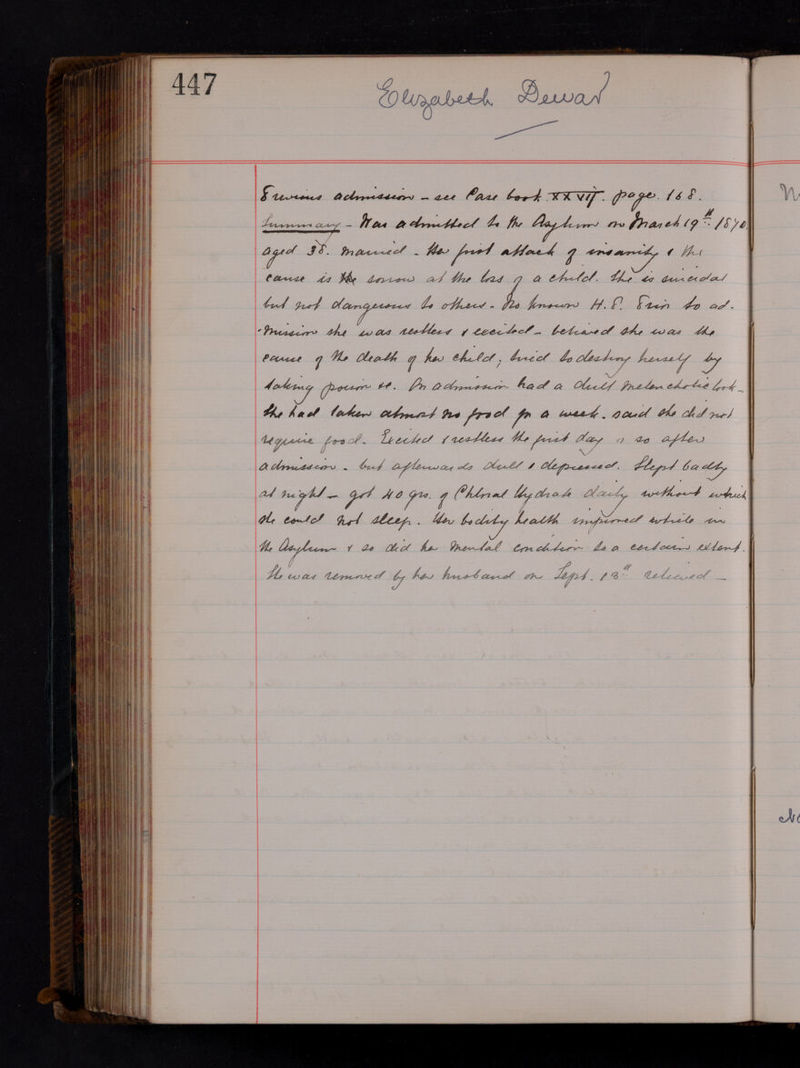 447
Elizabeth Dewar
Previous admission - see Case book XXVII. page. 168.
Summary - Was admitted to the Asylum on March 19th 1870
aged 38. Married - Her first attack of insanity & the
cause is the sorrow at the loss of a child. She is suicidal
but not dangerous to others - No known H.P. Prior to ad-
-mission she was restless & excited - believed she was the
cause of the death of her child, tried to destroy herself by
taking poison &c. On admission had a dull melancholic look -
She had taken almost no food for a week. said she did not
require food. Excited & restless the first day or so after
admission. but afterwards dull & depressed. Slept badly
at night - got 40 grs. of Chloral Hydrate daily without which
she could not sleep. Her bodily health improved while in
the Asylum & so did her mental condition to a certain extent.
She was removed by her husband on Sept. 13th relieved -